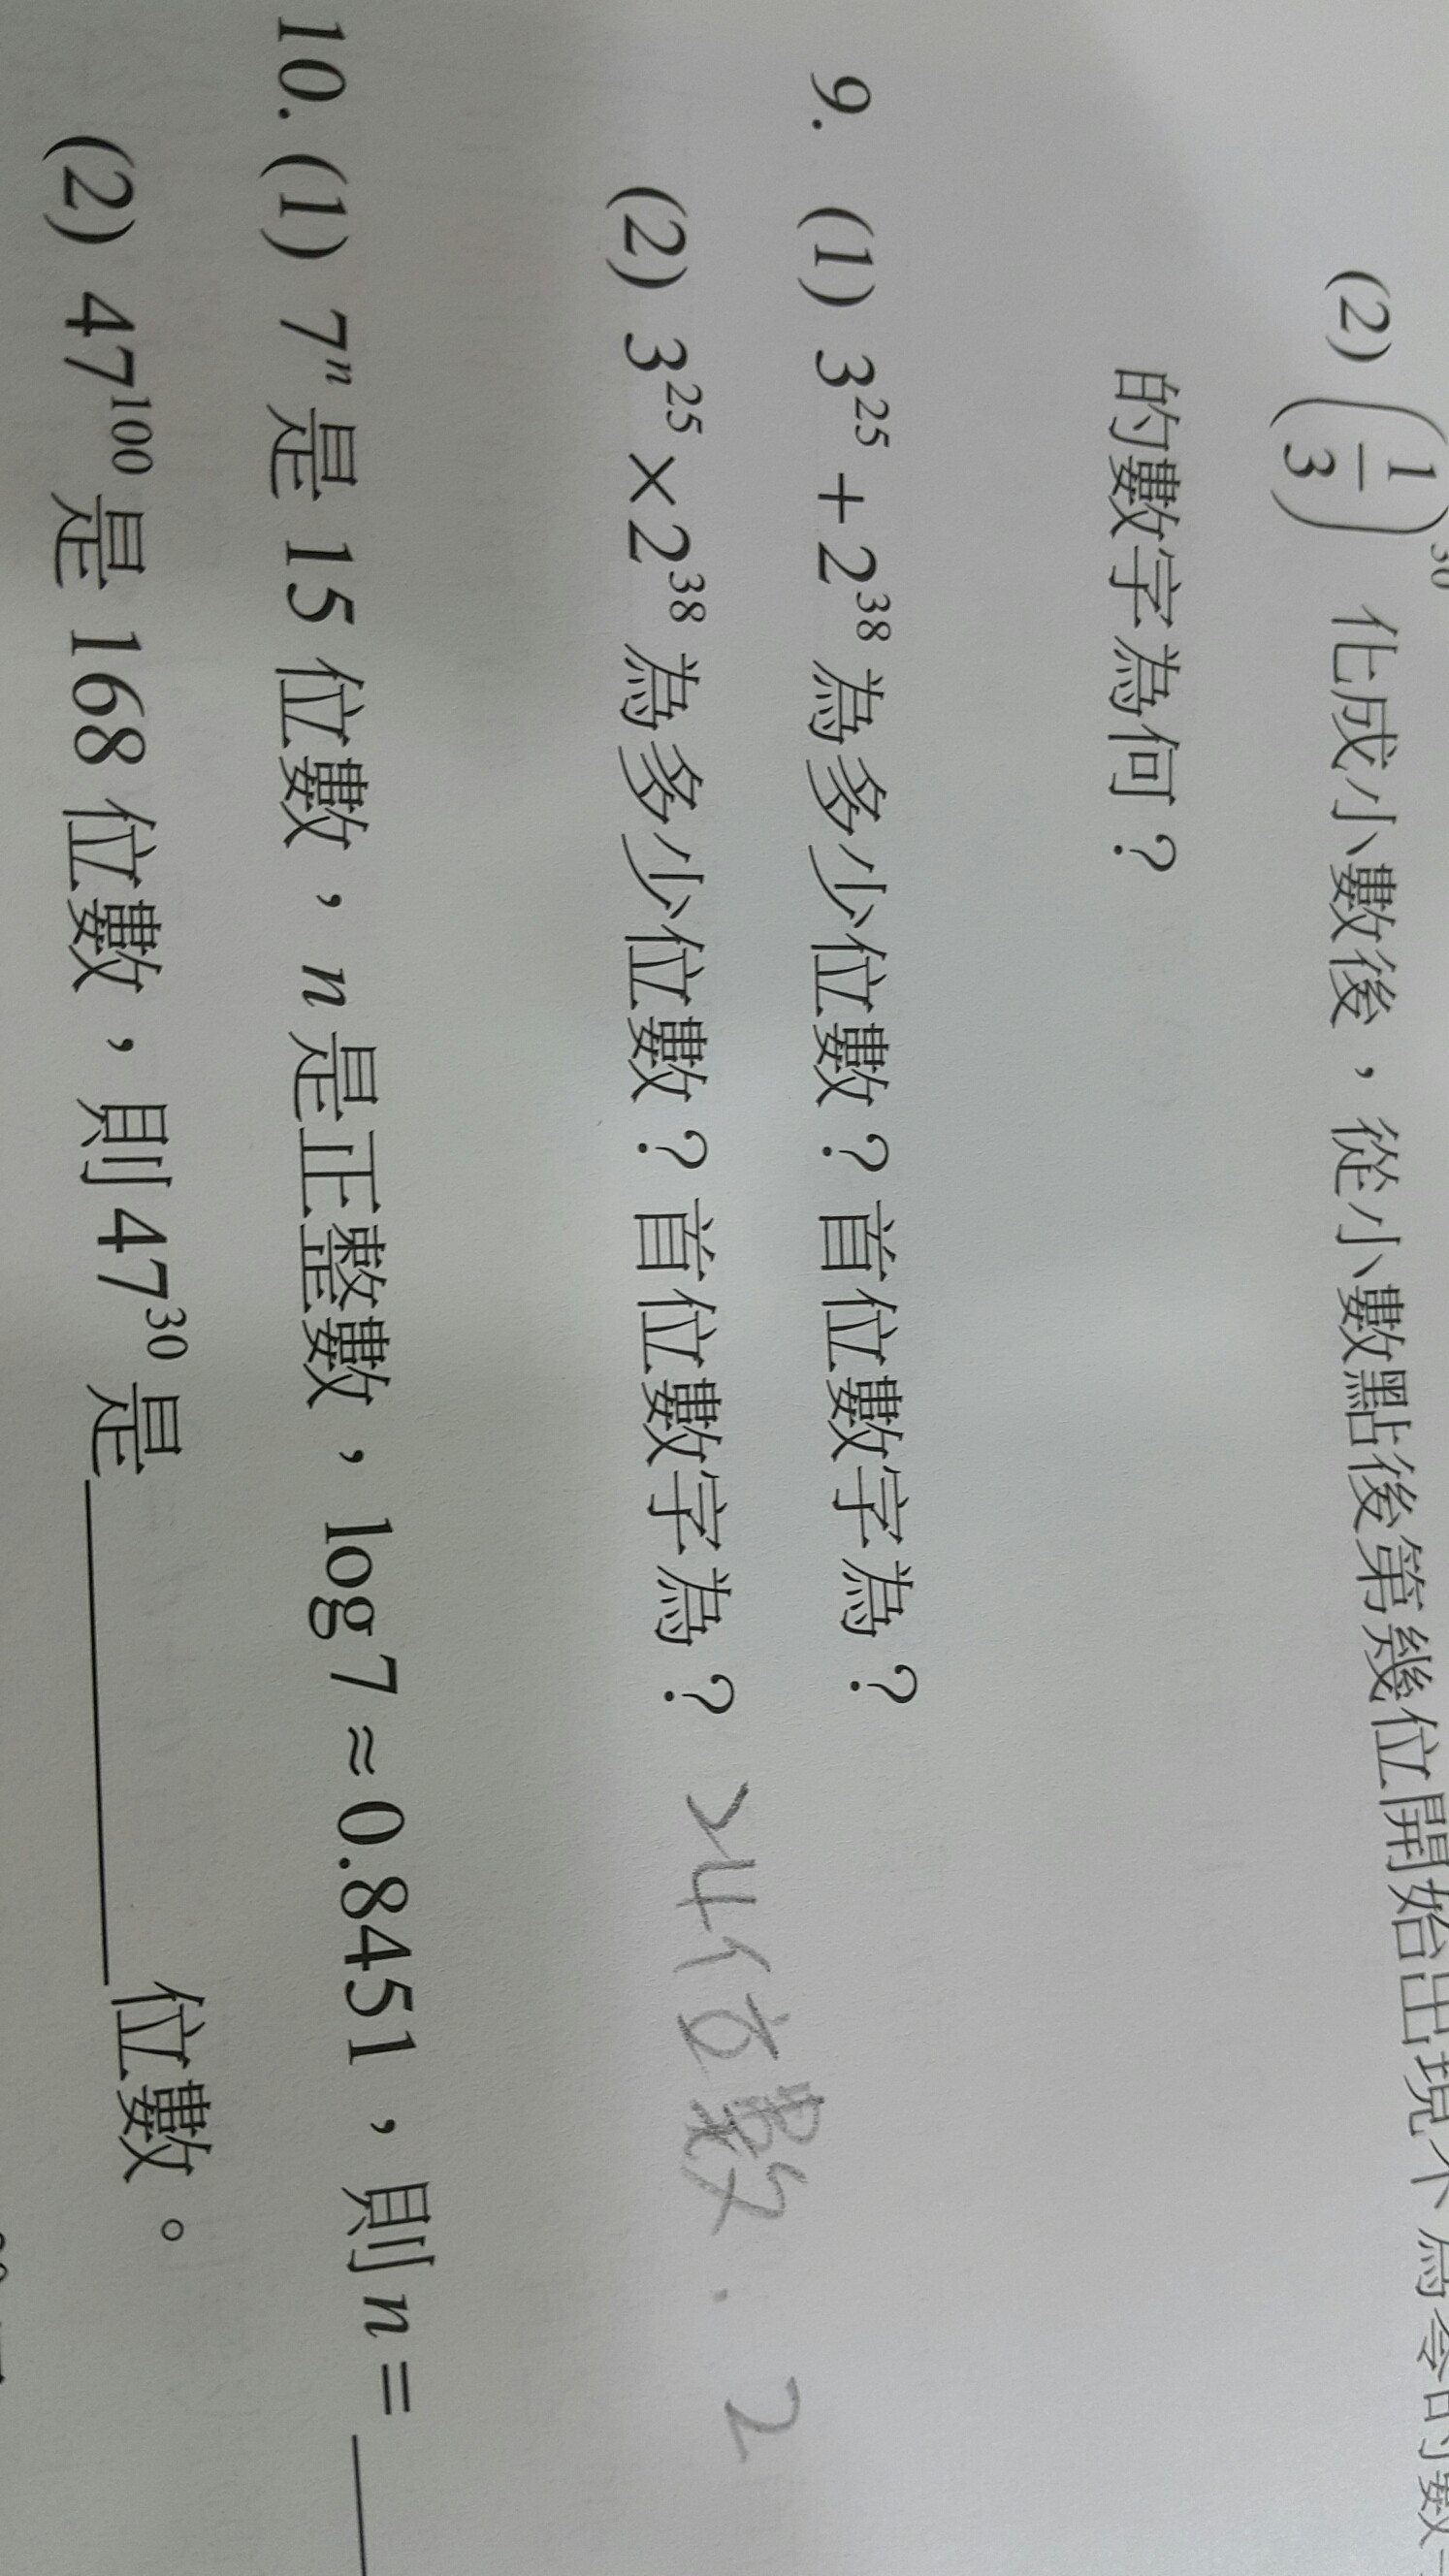 (2) (1/3)^30 化成小數後，從小數點後第幾位開始出現不為零的數
的數字為何？
9. (1) 3^25 + 2^38 為多少位數？首位數字為？
(2) 3^25 × 2^38 為多少位數？首位數字為？ 24位數. 2
10. (1) 7^n 是 15 位數，n 是正整數，log 7 ≈ 0.8451，則 n = ____
(2) 47^100 是 168 位數，則 47^30 是 ________ 位數。